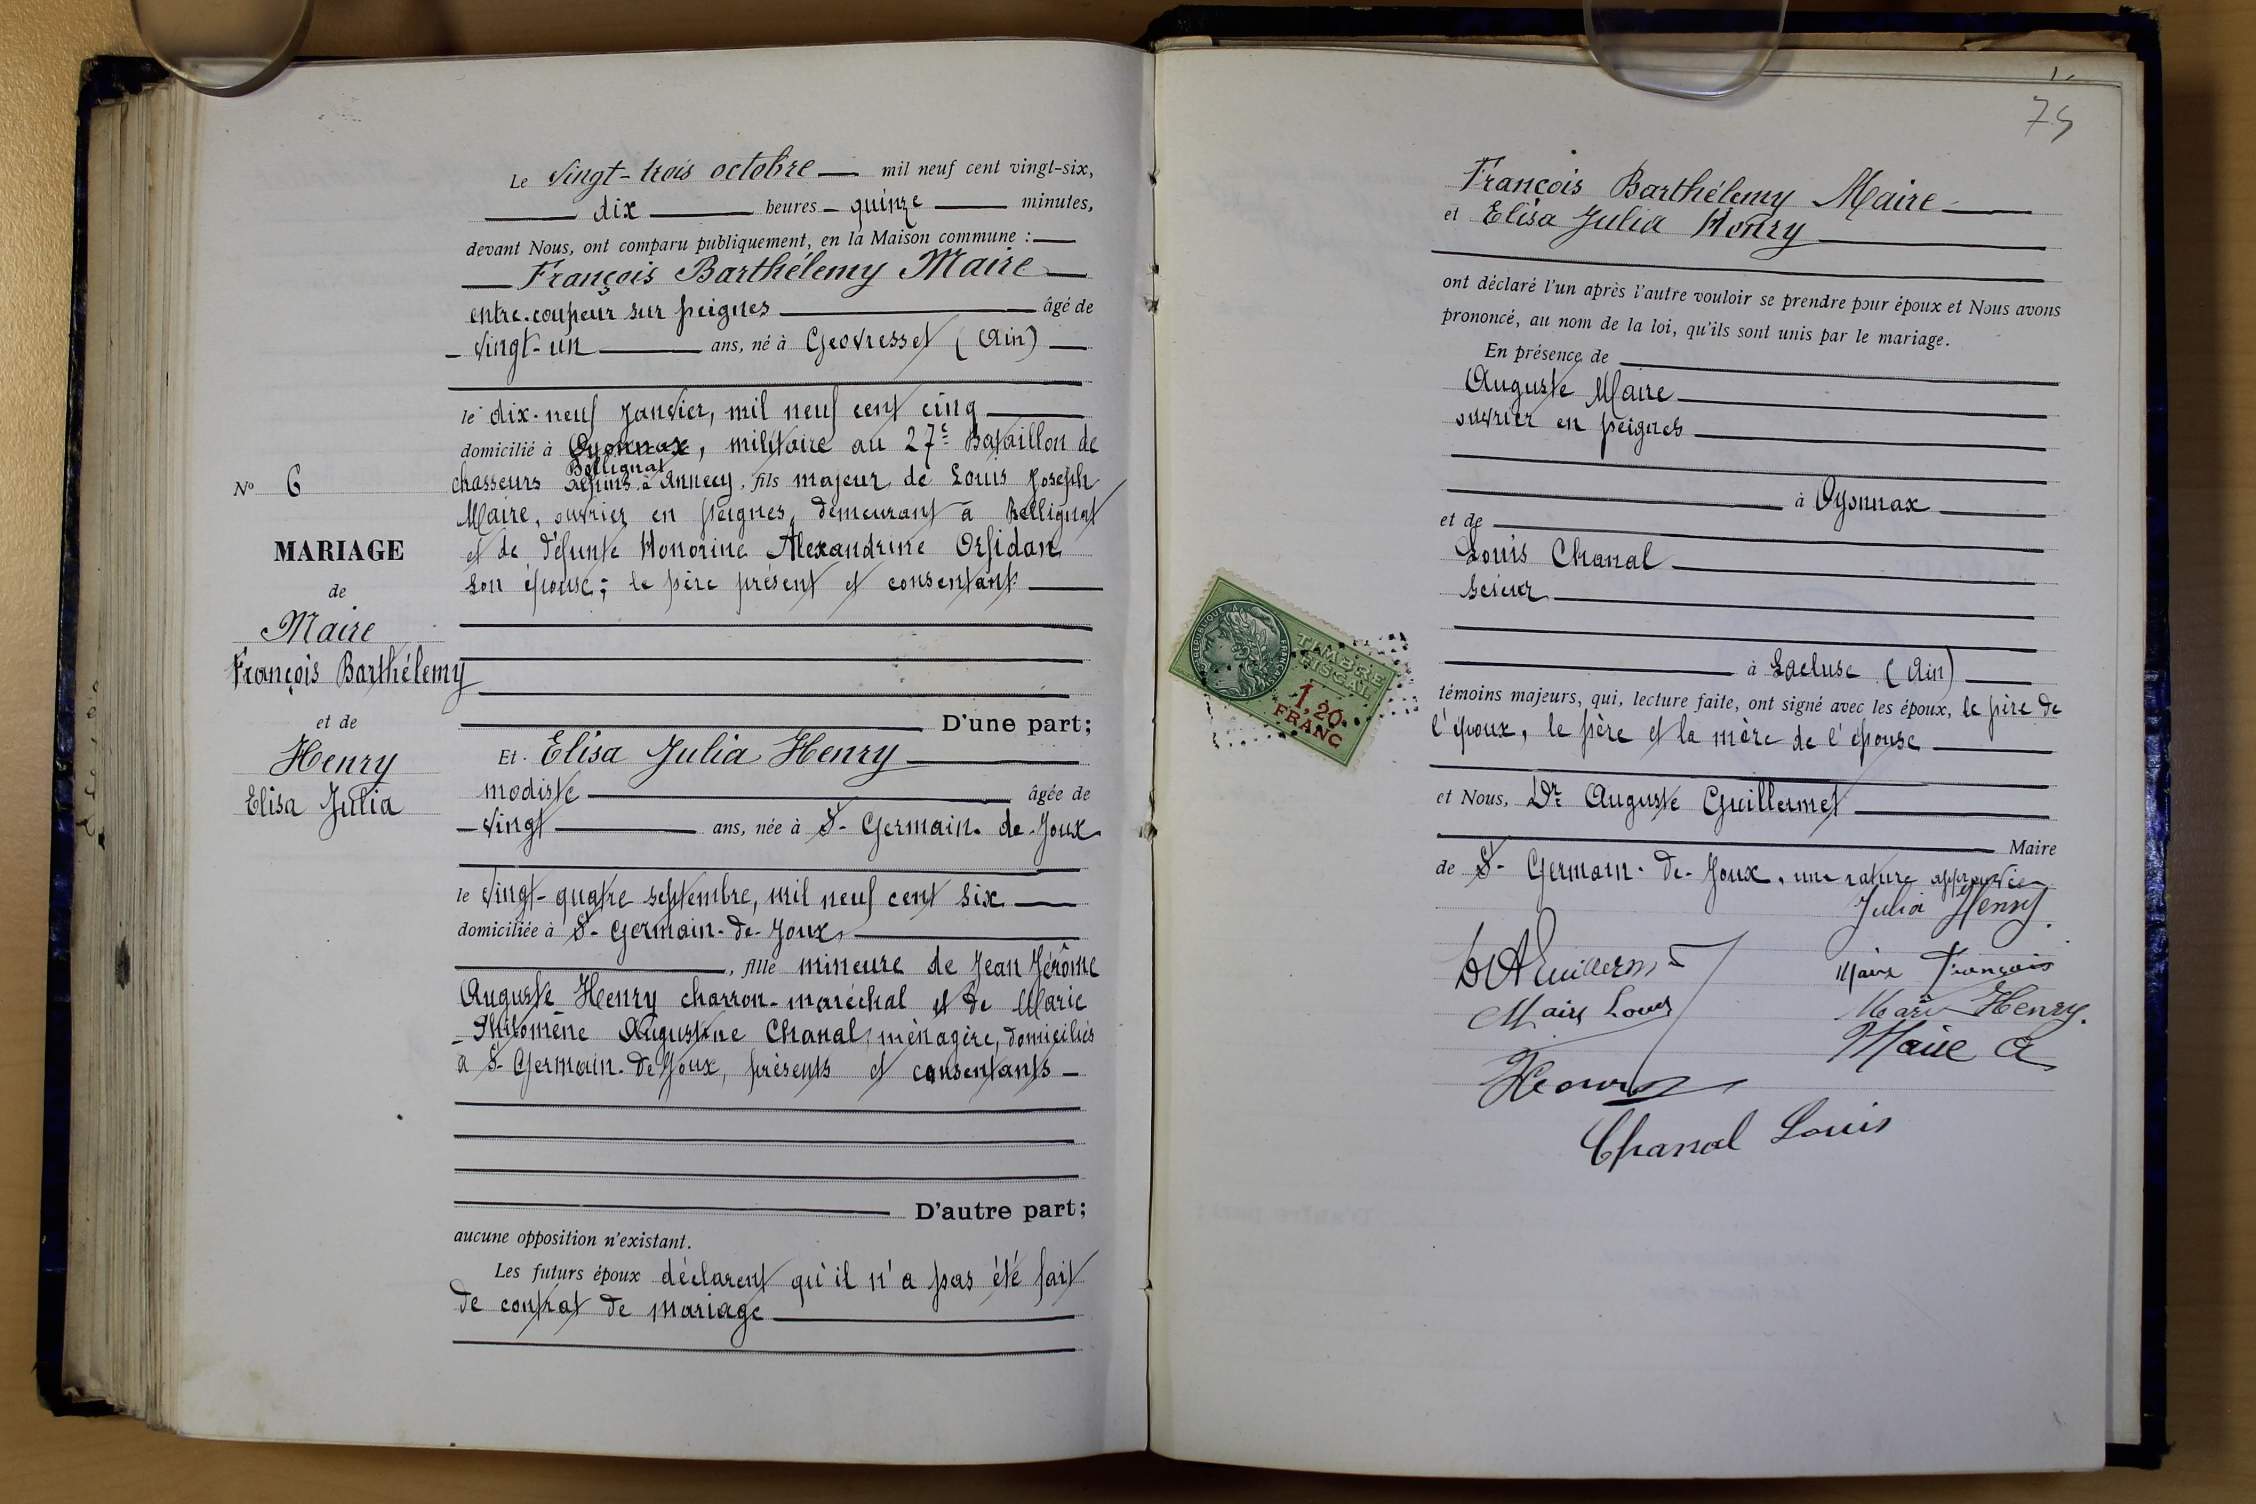 Le vingt-trois octobre mil neuf cent vingt-six,
dix heures quinze minutes,
devant Nous, ont comparu publiquement, en la Maison commune :
François Barthélemy Maire
entre-coupeur sur peignes âgé de
vingt-un ans, né à Geovresset (Ain)
le dix-neuf janvier, mil neuf cent cinq
domicilié à Oyonnax, militaire au 27e Bataillon de
Bellignat
chasseurs alpins à Annecy, fils majeur de Louis Joseph
Maire, ouvrier en peignes, demeurant à Bellignat
et de défunte Honorine Alexandrine Orsidan
son épouse; le père présent et consentant
D'une part;
Et Elisa Julia Henry
modiste âgée de
vingt ans, née à St-Germain-de-Joux
le vingt-quatre septembre, mil neuf cent six
domiciliée à St-Germain-de-Joux
, fille mineure de Jean Jérôme
Auguste Henry charron-maréchal et de Marie
Philomène Augustine Chanal, ménagère, domiciliés
à St-Germain-de-Joux, présents et consentants
D'autre part;
aucune opposition n'existant.
Les futurs époux déclarent qu'il n'a pas été fait
de contrat de mariage
N° 6
MARIAGE
de
Maire
François Barthélemy
et de
Henry
Elisa Julia
75
François Barthélemy Maire
et Elisa Julia Henry
ont déclaré l'un après l'autre vouloir se prendre pour époux et Nous avons
prononcé, au nom de la loi, qu'ils sont unis par le mariage.
En présence de
Auguste Maire
ouvrier en peignes
à Oyonnax
et de
Louis Chanal
scieur
à Lacluse (Ain)
témoins majeurs, qui, lecture faite, ont signé avec les époux, le père de
l'époux, le père et la mère de l'épouse
et Nous, Dr Auguste Guillermet
Maire
de St-Germain-de-Joux, une rature approuvée
Julia Henry
Dr A Guillermet
Maire François
Maire Louis
Marie Henry
Maire A
Henry
Chanal Louis
REPUBLIQUE FRANÇAISE
TIMBRE
FISCAL
1,20
FRANC